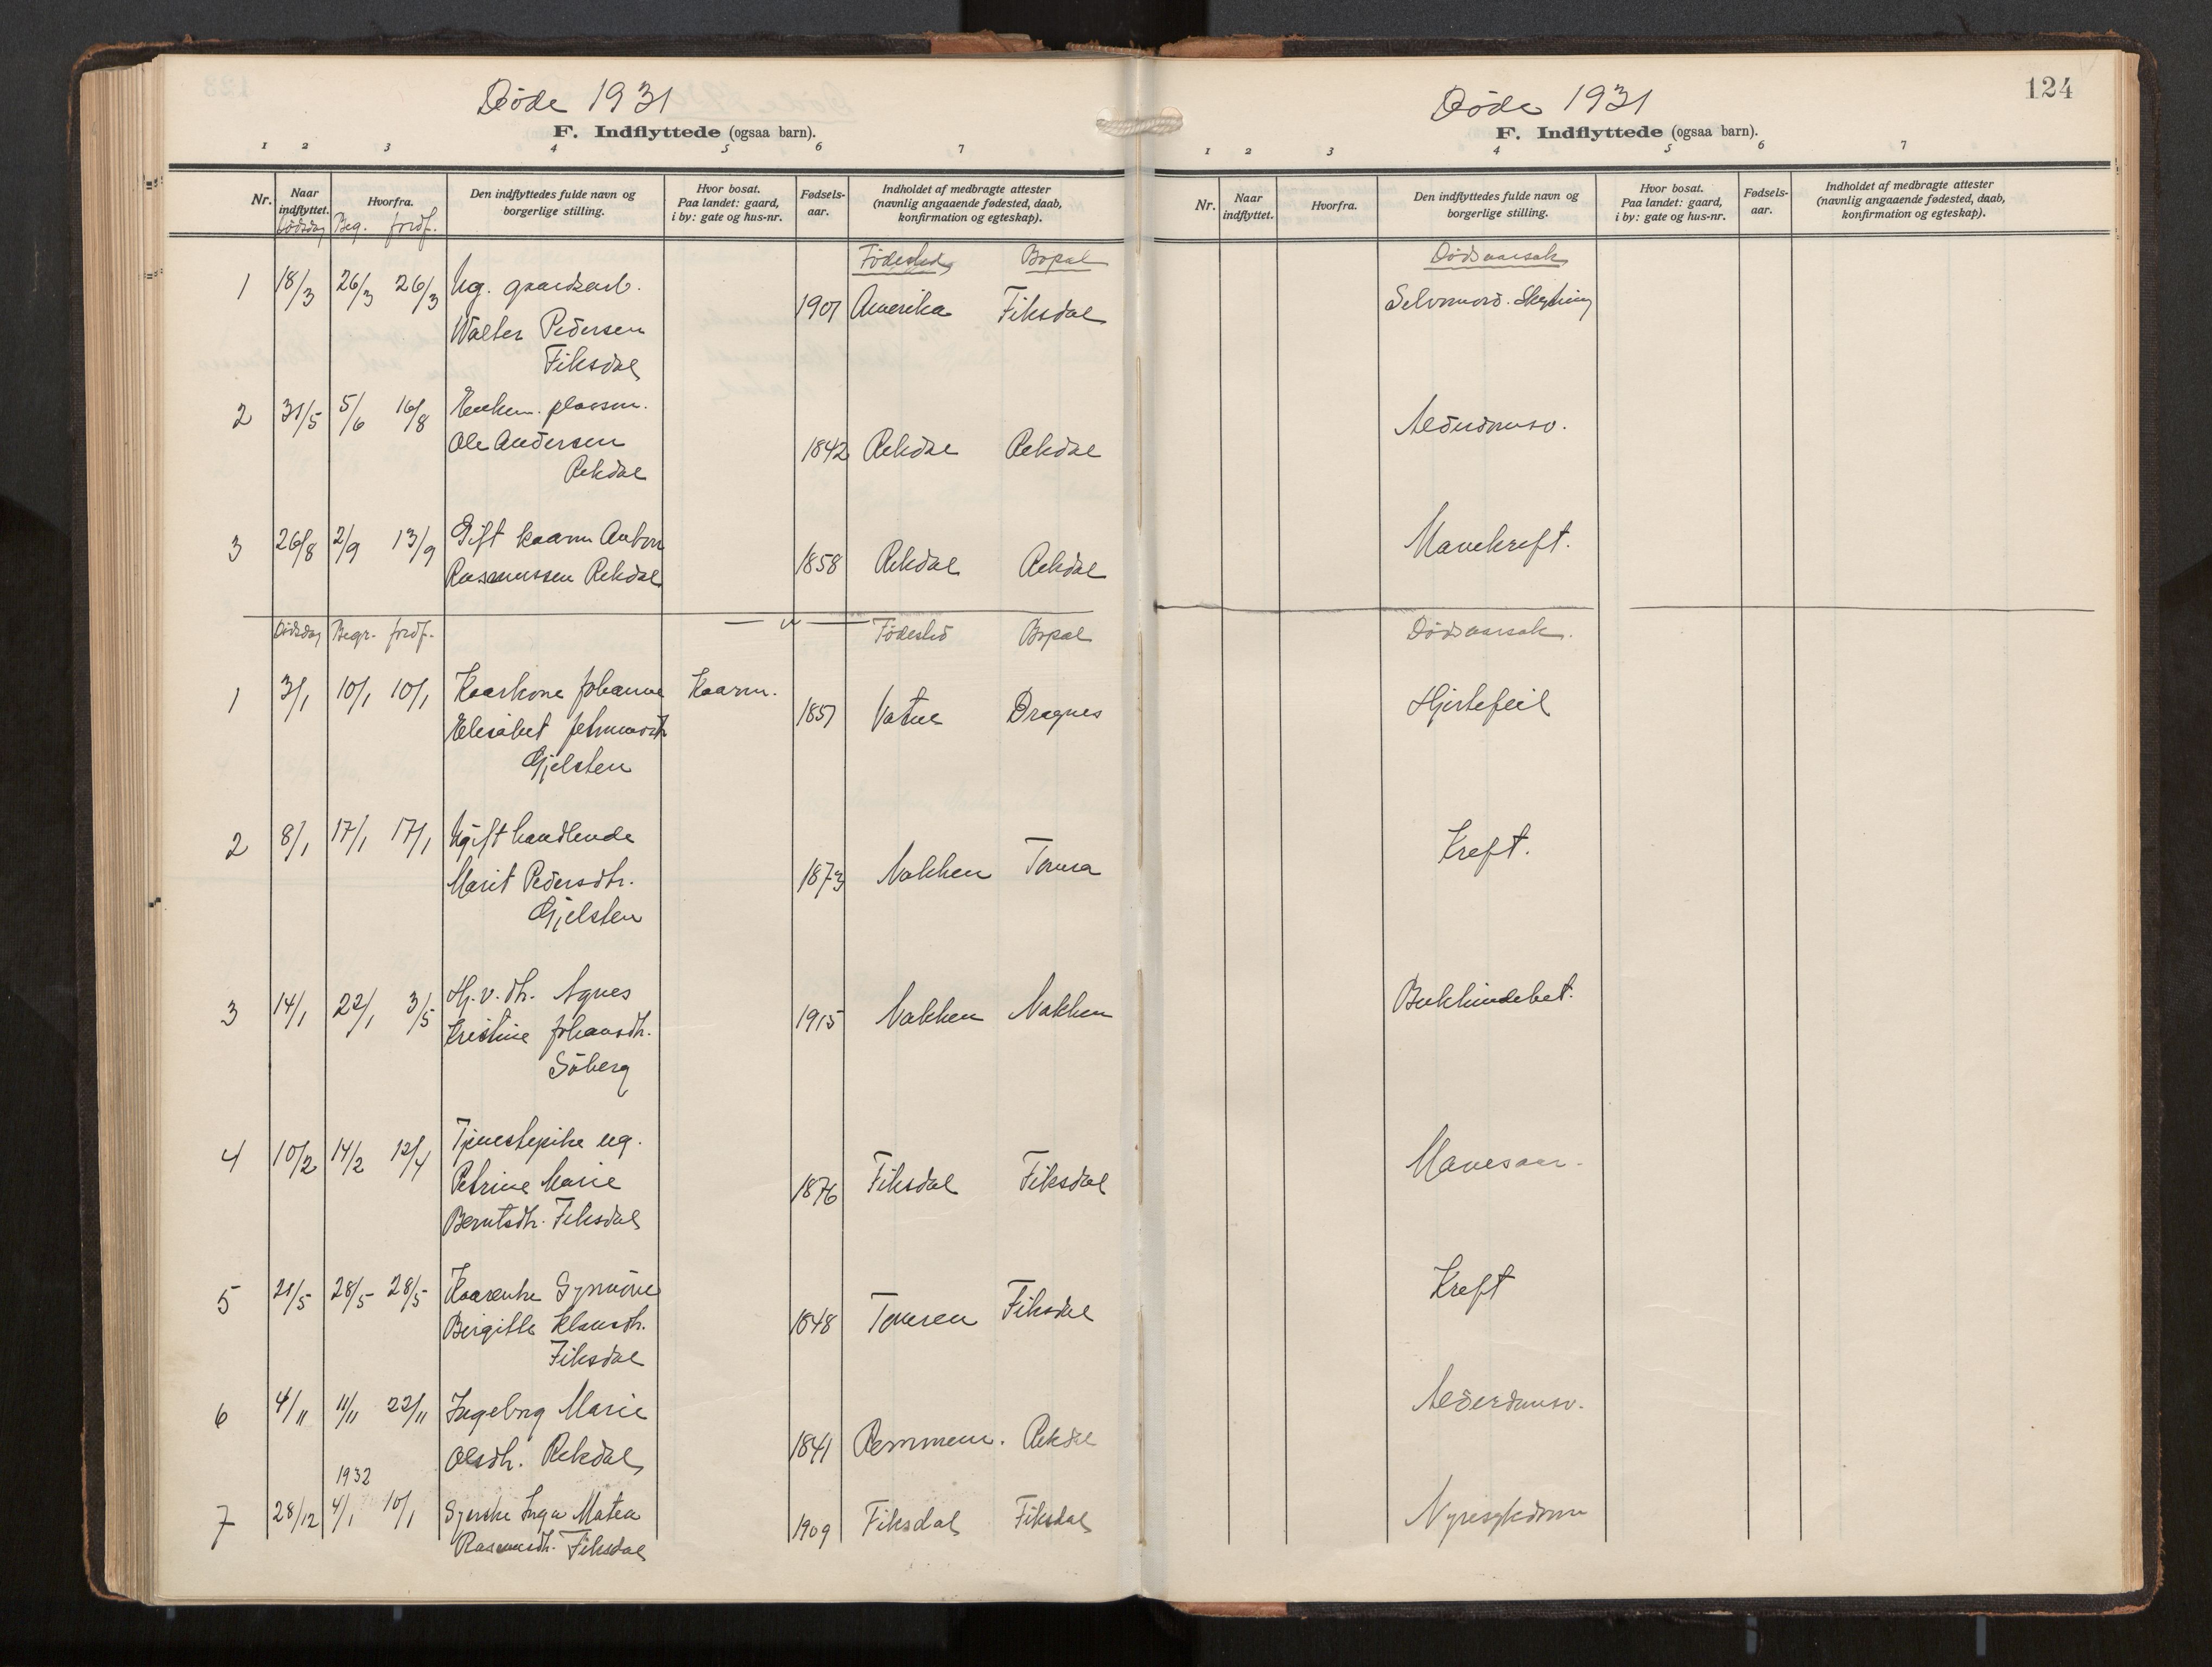 Døde 1931
F. Indflyttede (ogsaa barn).
1 2 3 4 5 6 7
Nr.
Naar indflyttet.
Hvorfra.
Den indflyttedes fulde navn og borgerlige stilling.
Hvor bosat. Paa landet: gaard, i by: gate og hus-nr.
Fødsels-aar.
Indholdet af medbragte attester (navnlig angaaende fødested, daab, konfirmation og egteskap).
Dødsdag Beg. jordf.
Fødested Bopæl
1 18/3 26/3 26/3 Ug. gaardsarb.
Walter Pedersen 1907 Amerika Fiksdal
Fiksdal
2 31/5 5/6 16/8 Enkem. plassm.
Ole Andersen 1842 Rekdal Rekdal
Rekdal
3 26/8 2/9 13/9 Gift kaarm Anton
Rasmussen Rekdal 1858 Rekdal Rekdal
Dødsdag Begr. jordf. — v — Fødested Bopæl
1 3/1 10/1 10/1 Kaarkone Johanne Kaarm.
Elisabet 1857 Vatne Dragnes
Gjelsten
2 8/1 17/1 17/1 Ugift handlende
Marit Pedersdtr. 1873 Nakken Tomra
Gjelsten
3 14/1 22/1 3/5 Hj.v. dtr. Agnes
Kristine Johansdtr. 1915 Nakken Nakken
Søberg
4 10/2 14/2 12/4 Tjenestepike ug.
Petrine Marie 1876 Fiksdal Fiksdal
Berntsdtr. Fiksdal
5 21/5 28/5 28/5 Kaarenke Synnøve
Birgitte Klausdtr. 1848 Tomren Fiksdal
Fiksdal
6 4/11 11/11 22/11 Ingeborg Marie
Olsdtr. Rekdal 1841 Remmem. Rekdal
1932
7 28/12 4/1 10/1 Syerske Inga Matea
Rasmusdtr. Fiksdal 1909 Fiksdal Fiksdal
124
Døde 1931
F. Indflyttede (ogsaa barn).
1 2 3 4 5 6 7
Nr.
Naar indflyttet.
Hvorfra.
Den indflyttedes fulde navn og borgerlige stilling.
Hvor bosat. Paa landet: gaard, i by: gate og hus-nr.
Fødsels-aar.
Indholdet af medbragte attester (navnlig angaaende fødested, daab, konfirmation og egteskap).
Dødsaarsak
Selvmord. Skytning
Alderdomsv.
Mavekreft.
Dødsaarsak.
Hjertefeil
Kreft.
Bukhindebet.
Mavesaar.
Kreft
Alderdomsv.
Nyresykdom